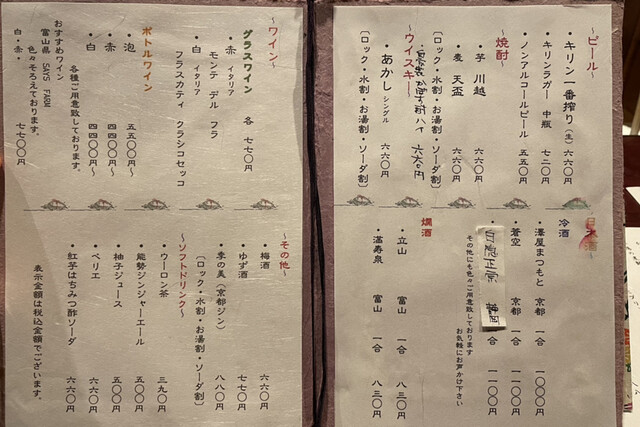 ～ビール～
・キリン一番搾り（生）六六〇円
・キリンラガー 中瓶 七二〇円
・ノンアルコールビール 五五〇円
～焼酎～
・芋 川越 六六〇円
・麦 天盃 六六〇円
〔ロック・水割・お湯割・ソーダ割〕
六六〇円
～ウイスキー～
・あかし シングル 六六〇円
〔ロック・水割・お湯割・ソーダ割〕
日本酒～
冷酒
・澤屋まつもと 京都 一合 一〇〇〇円
・蒼空 京都 一合 一一〇〇円
・白隠正宗 静岡 一合 一一〇〇円
その他にも色々ご用意しております
お気軽にお声かけ下さい
燗酒
・立山 富山 一合 八三〇円
・満寿泉 富山 一合 八三〇円
～ワイン～
グラスワイン 各 七七〇円
・赤 イタリア
モンテ デル フラ
・白 イタリア
フラスカティ クラシコセッコ
ボトルワイン
・泡 五五〇〇円～
・赤 四四〇〇円～
・白 四四〇〇円～
各種ご用意致しております。
おすすめワイン
富山県 SAYS FARM
色々そろえております。
白・赤・ 七七〇〇円
～その他～
・梅酒 六六〇円
・ゆず酒 七七〇円
・季の美（京都ジン） 八八〇円
〔ロック・水割・お湯割・ソーダ割〕
～ソフトドリンク～
・ウーロン茶 三九〇円
・能勢ジンジャーエール 五〇〇円
・柚子ジュース 五〇〇円
・ペリエ 六六〇円
・紅芋はちみつ酢ソーダ 六六〇円
表示金額は税込金額でございます。